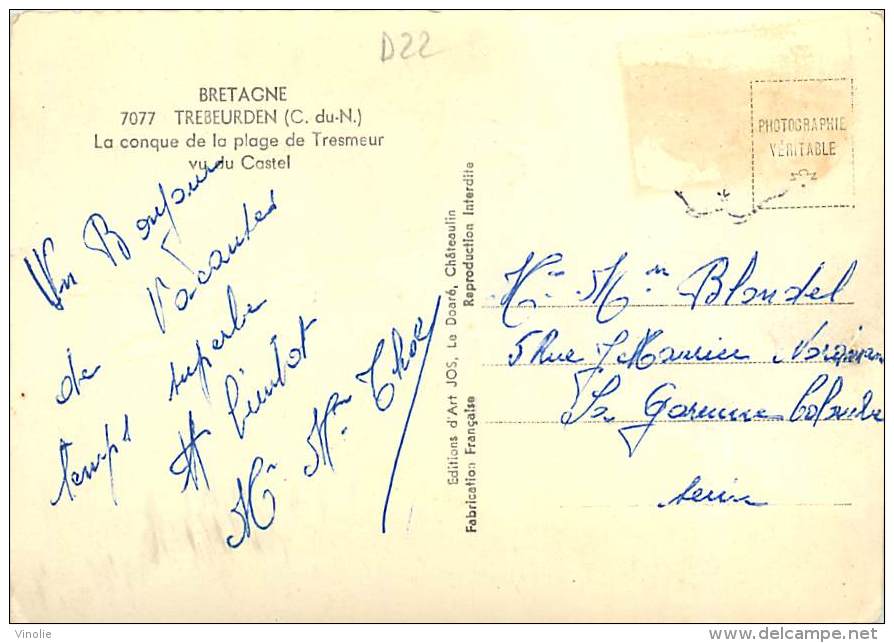 D22
BRETAGNE
7077 TREBEURDEN (C. du-N.)
La conque de la plage de Tresmeur
vu du Castel
Un Bonjour
de Vacances
temps superbe
A bientôt
Mr Mme
Editions d'Art JOS, Le Doaré, Châteaulin
Fabrication Française Reproduction Interdite
PHOTOGRAPHIE
VÉRITABLE
Mr Mme Blondel
5 Rue Maurice
La Garenne Colombe
Seine
Vinolie
www.delcampe.net